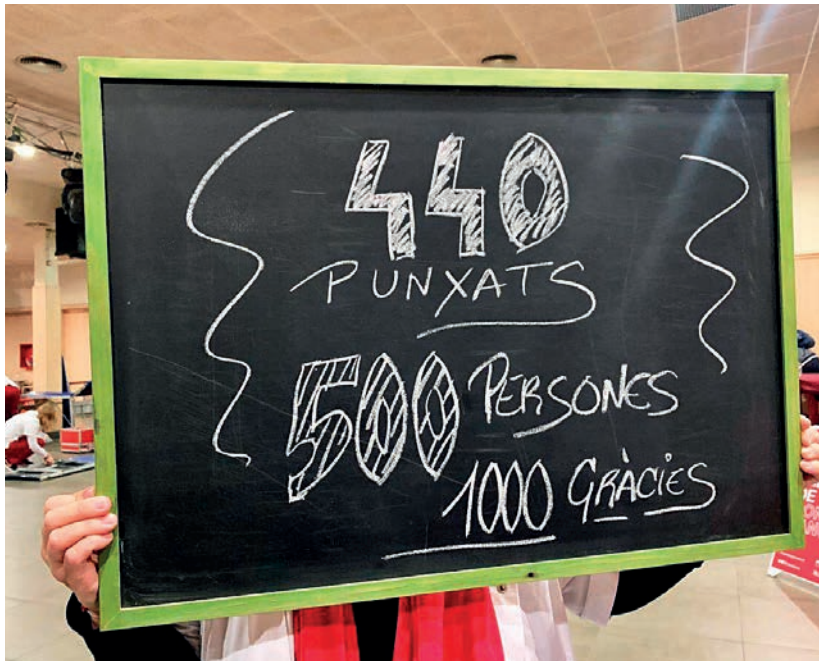 440
PUNXATS
500 PERSONES
1000 GRÀCIES
DE